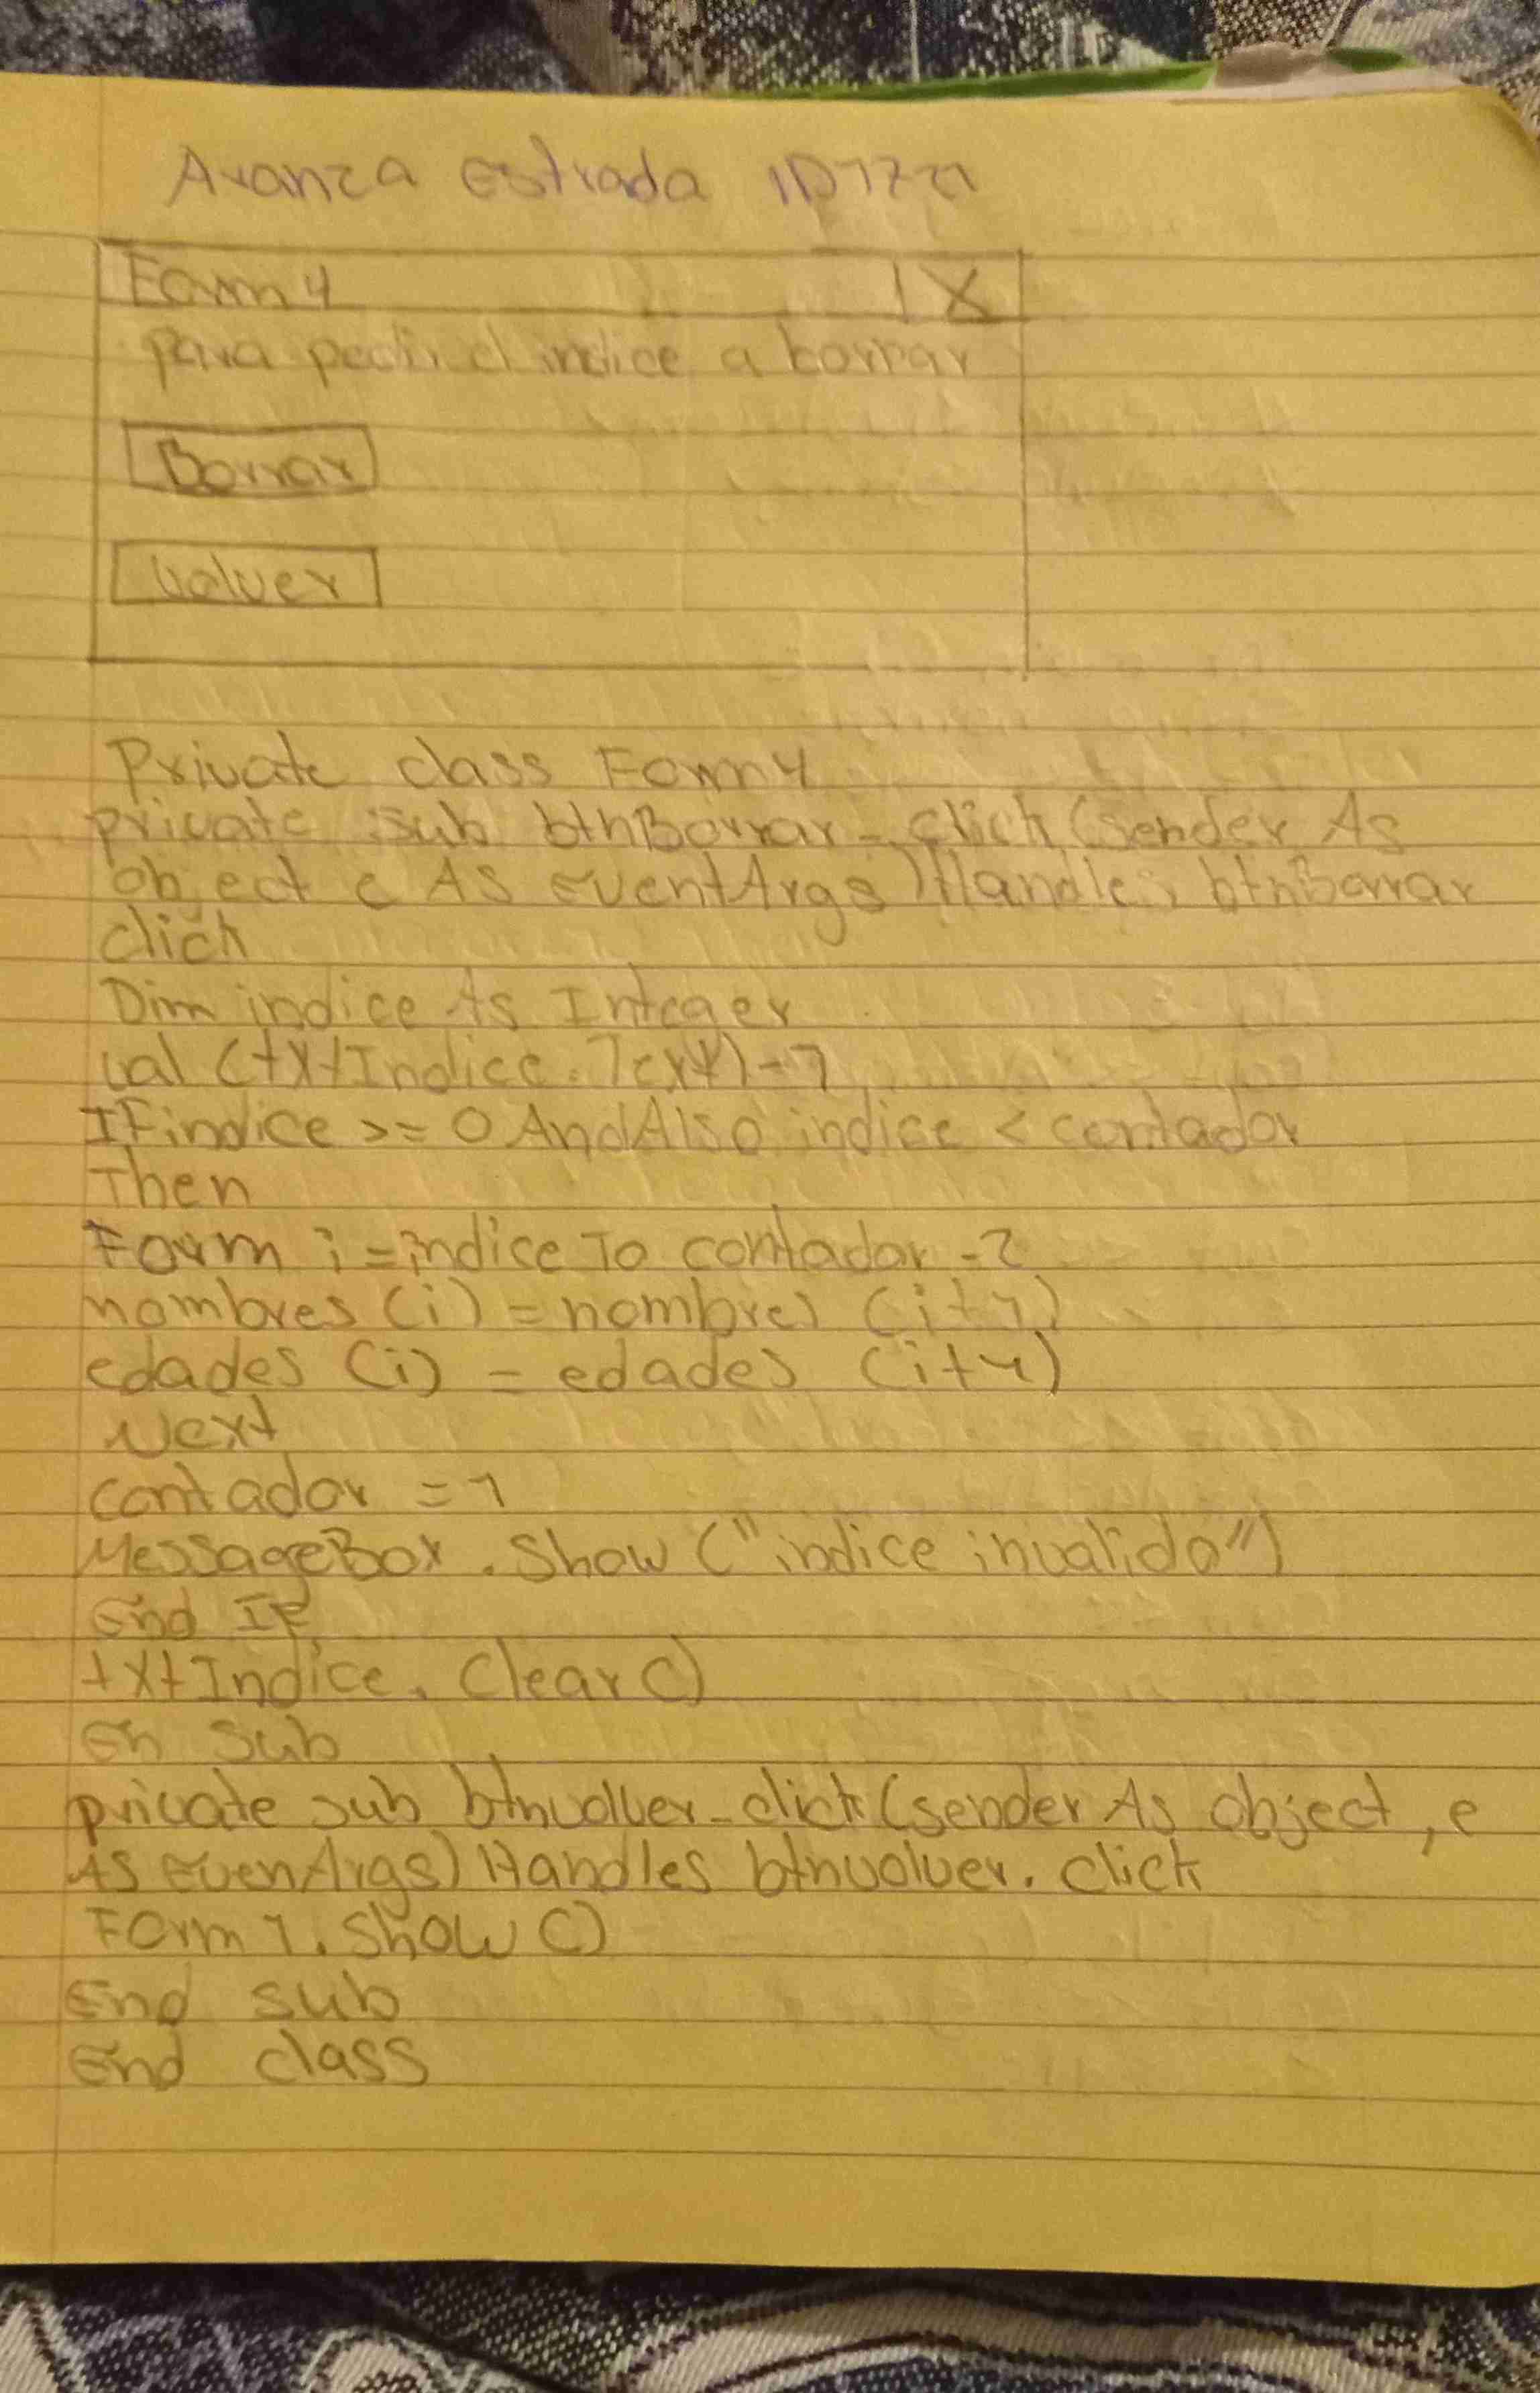 Avanza Estrada
Form 4 X
para pedir el indice a borrar
Borrar
volver
Private class Form 4
private sub btnBorrar_click (sender As
object e As EventArgs) Handles btnBorrar
click
Dim indice As Integer
val (txtIndice.Text) - 1
IF indice >= 0 AndAlso indice < contador
Then
Form i = indice To contador - 2
nombres (i) = nombres (i+1)
edades (i) = edades (i+1)
Next
contador = 1
MessageBox.Show ("indice invalido")
End IF
txtIndice.Clear()
En Sub
private sub btnvolver_click (sender As object, e
As EvenArgs) Handles btnvolver.click
Form 1.Show ()
End sub
End class